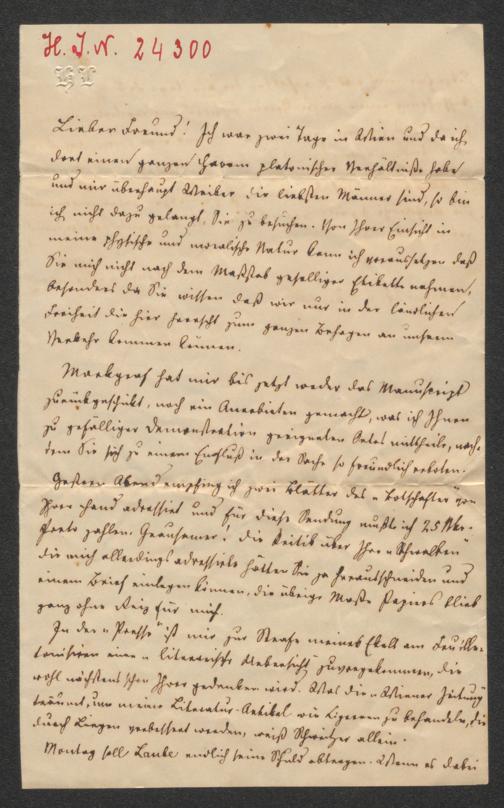 H. I. N. 24300
Lieber Freund! Ich war zwei Tage in Wien und da ich
dort einen ganzen Harem platonischer Verhältniße habe
und mir überhaupt Weiber die liebsten Männer sind, so bin
ich nicht dazu gelangt, Sie zu besuchen. Von Ihrer Einsicht in
meine phÿsische und moralische Natur kann ich voraussetzen daß
Sie mich nicht nach dem Maßstab geselliger Etikette nehmen,
besonders da Sie wissen daß wir nur in der ländlichen
Freiheit die hier herrscht zum ganzen Behagen an unserem
Verkehr kommen können.
Markgraf hat mir bis jetzt weder das Manuscript
zurückgeschickt, noch ein Anerbieten gemacht, was ich Ihnen
zu gefälliger Demonstration geeigneten Ortes mittheile, nach-
dem Sie sich zu einem Einfluß in der Sache so freundlich erboten.
Gestern Abend empfing ich zwei Blätter des „Botschafter" von
Ihrer Hand adressirt und für diese Sendung mußte ich 25 Nkr.
Porto zahlen. Grausamer! die Kritik über Ihre „Schwalben"
die mich allerdings adressirte hätten Sie ja herausschneiden und
einem Brief einlegen können, die übrige Maße Papiers blieb
ganz ohne Reiz für mich.
In der „Presse" ist mir zur Strafe meines Ekels am Feuille-
tonisiren eine „literarische Uebersicht" zuvorgekommen, die
wohl nächstens schon Ihrer gedenken wird. Was die „Wiener Zeitung"
träumt, um meine Literatur-Artikel wie Ligeren zu behandeln, die
durch Liegen verbessert werden, weiß Schweitzer allein.
Montag soll Laube endlich seine Schuld abtragen. Wenn es dabei